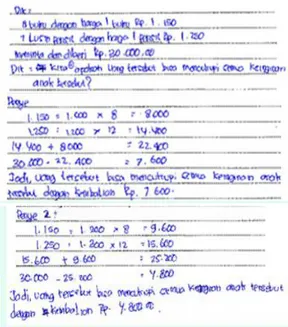 Dik :
8 buku dengan harga 1 buku Rp. 1.150
1 Lusin pensil dengan harga 1 pensil Rp. 1.250
meminta dan diberi Rp. 30.000,00
Dit : kita apakah uang tersebut bisa mencukupi semua keinginan
anak tersebut?
Penye
1.150 = 1.000 × 8 = 8000
1.250 = 1.200 × 12 = 14.400
14 400 + 8000 = 22.400
30.000 - 22.400 = 7.600
Jadi, uang tersebut bisa mencukupi semua keinginan anak
tersebut dengan kembalian Rp. 7 600.
Penye 2 :
1.150 = 1.200 × 8 = 9.600
1.250 = 1.300 × 12 = 15.600
15.600 + 9.600 = 25.200
30.000 - 25.200 = 4.800
Jadi, uang tersebut bisa mencukupi semua keinginan anak tersebut
dengan kembalian Rp. 4.800